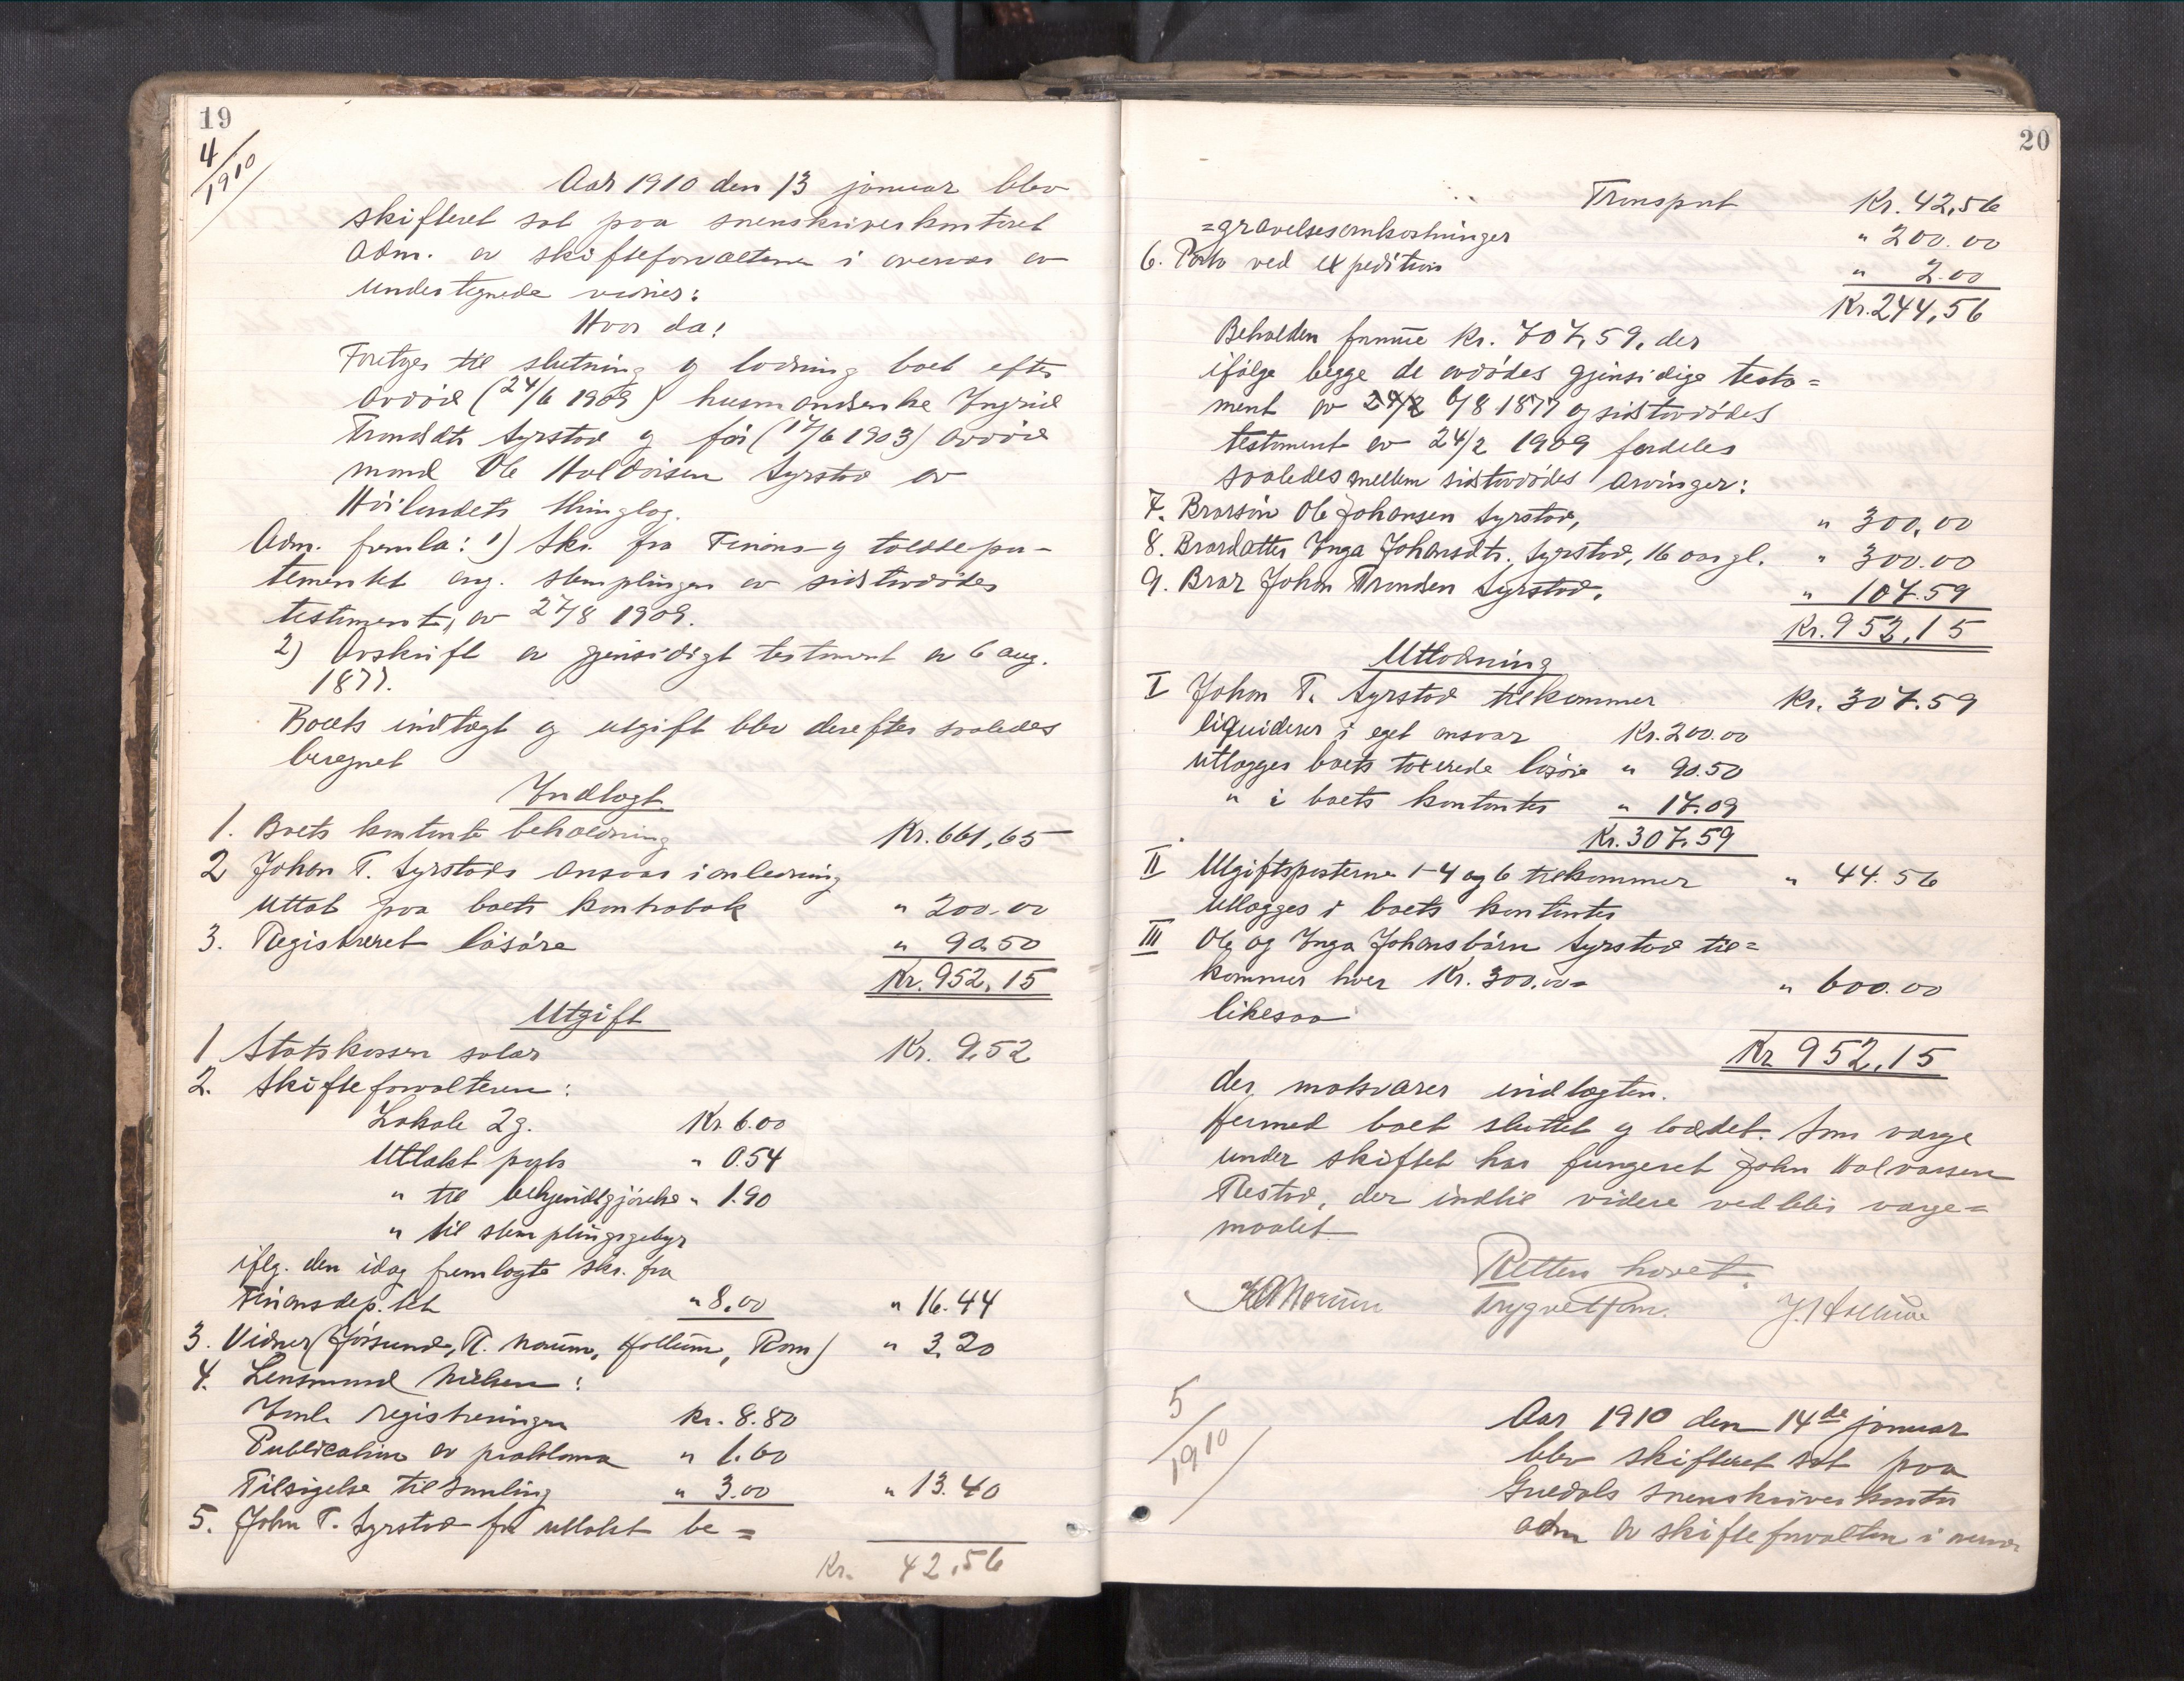 19
4/1910
Aar 1910 den 13 januar blev
skifteret sat paa sorenskriverkontoret
adm. av skifteforvalteren i overvær av
undertegnede vidner:
Hvor da:
Foretges til slutning og lodning boet efter
avdøde (24/6 1909) husmandsenke Ingrid
Trondsdtr Syrstad og før (17/6 1903) avdøde
mand Ole Haldorsen Syrstad av
Høilandets thinglag.
Adm. fremla: 1) Skr. fra Finans- og tolddepar-
tementet ang. stemplingen av sidstavdødes
testament, av 27/8 1909.
2) Avskrift av gjensidigt testament av 6 aug.
1877.
Boets indtægt og utgift blev derefter saaledes
beregnet
Indtægt
1. Boets kontante beholdning Kr. 661,65
2 John T. Syrstads ansvar i anledning
uttat paa boets kontrabok " 200.00
3. Registreret løsøre " 90.50
Kr. 952.15
Utgift
1 Statskassen salær Kr. 9.52
2. Skifteforvalteren:
Lokale 2 g. Kr. 6.00
Utlakt porto " 0.54
" til bekjendtgjørelse " 1.90
" til stemplingsgebyr
iflg. den idag fremlagte skr. fra
Finansdep.tet " 8.00 " 16.44
3. Vidner (Gjøsund, R. Morum, Hollum, Rom) " 3.20
4. Lensmand Nielsen:
Forr. registreringen Kr. 8.80
Publication av proklama " 1.60
Tilsigelse til samling " 3.00 " 13.40
5. John T. Syrstad for utlakt be=
Kr. 42,56
20
Transport Kr. 42,56
=gravelsesomkostninger " 200.00
6. Porto ved expedition " 2.00
Kr. 244,56
Beholden formue kr. 707,59, der
ifølge begge de avdødes gjensidige testa=
ment av 24/2 6/8 1877 og sidstavdødes
testament av 24/2 1909 fordeles
saaledes mellem sidstavdødes arvinger:
7. Brorsøn Ole Johansen Syrstad, " 300,00
8. Brordatter Inga Johansdtr. Syrstad, 16 aar gl. " 300.00
9. Bror John Tronsen Syrstad, " 107.59
Kr. 952,15
Utlodning
I John T. Syrstad tilkommer Kr. 307.59
liquiderer i eget ansvar Kr. 200.00
utlægges boets taxerede løsøre " 90.50
" i boets kontanter " 17.09
Kr. 307.59
II Utgiftsposterne 1-4 og 6 tilkommer " 44.56
utlægges i boets kontanter
III Ole og Inga Johansbørn Syrstad til=
kommer hver Kr. 300.00 = " 600.00
likesaa
Kr 952.15
der motsvarer indtægten.
Hermed boet sluttet og loddet. Som værge
under skiftet har fungeret John Halvorsen
Restad, der indtil videre vedblir værge=
maalet.
Retten hævet.
K A Morum Trygve Rom. J. Hollum
5/1910
Aar 1910 den 14de januar
blev skifteret sat paa
Guldals sorenskriverkontor
adm av skifteforvalteren i overvær